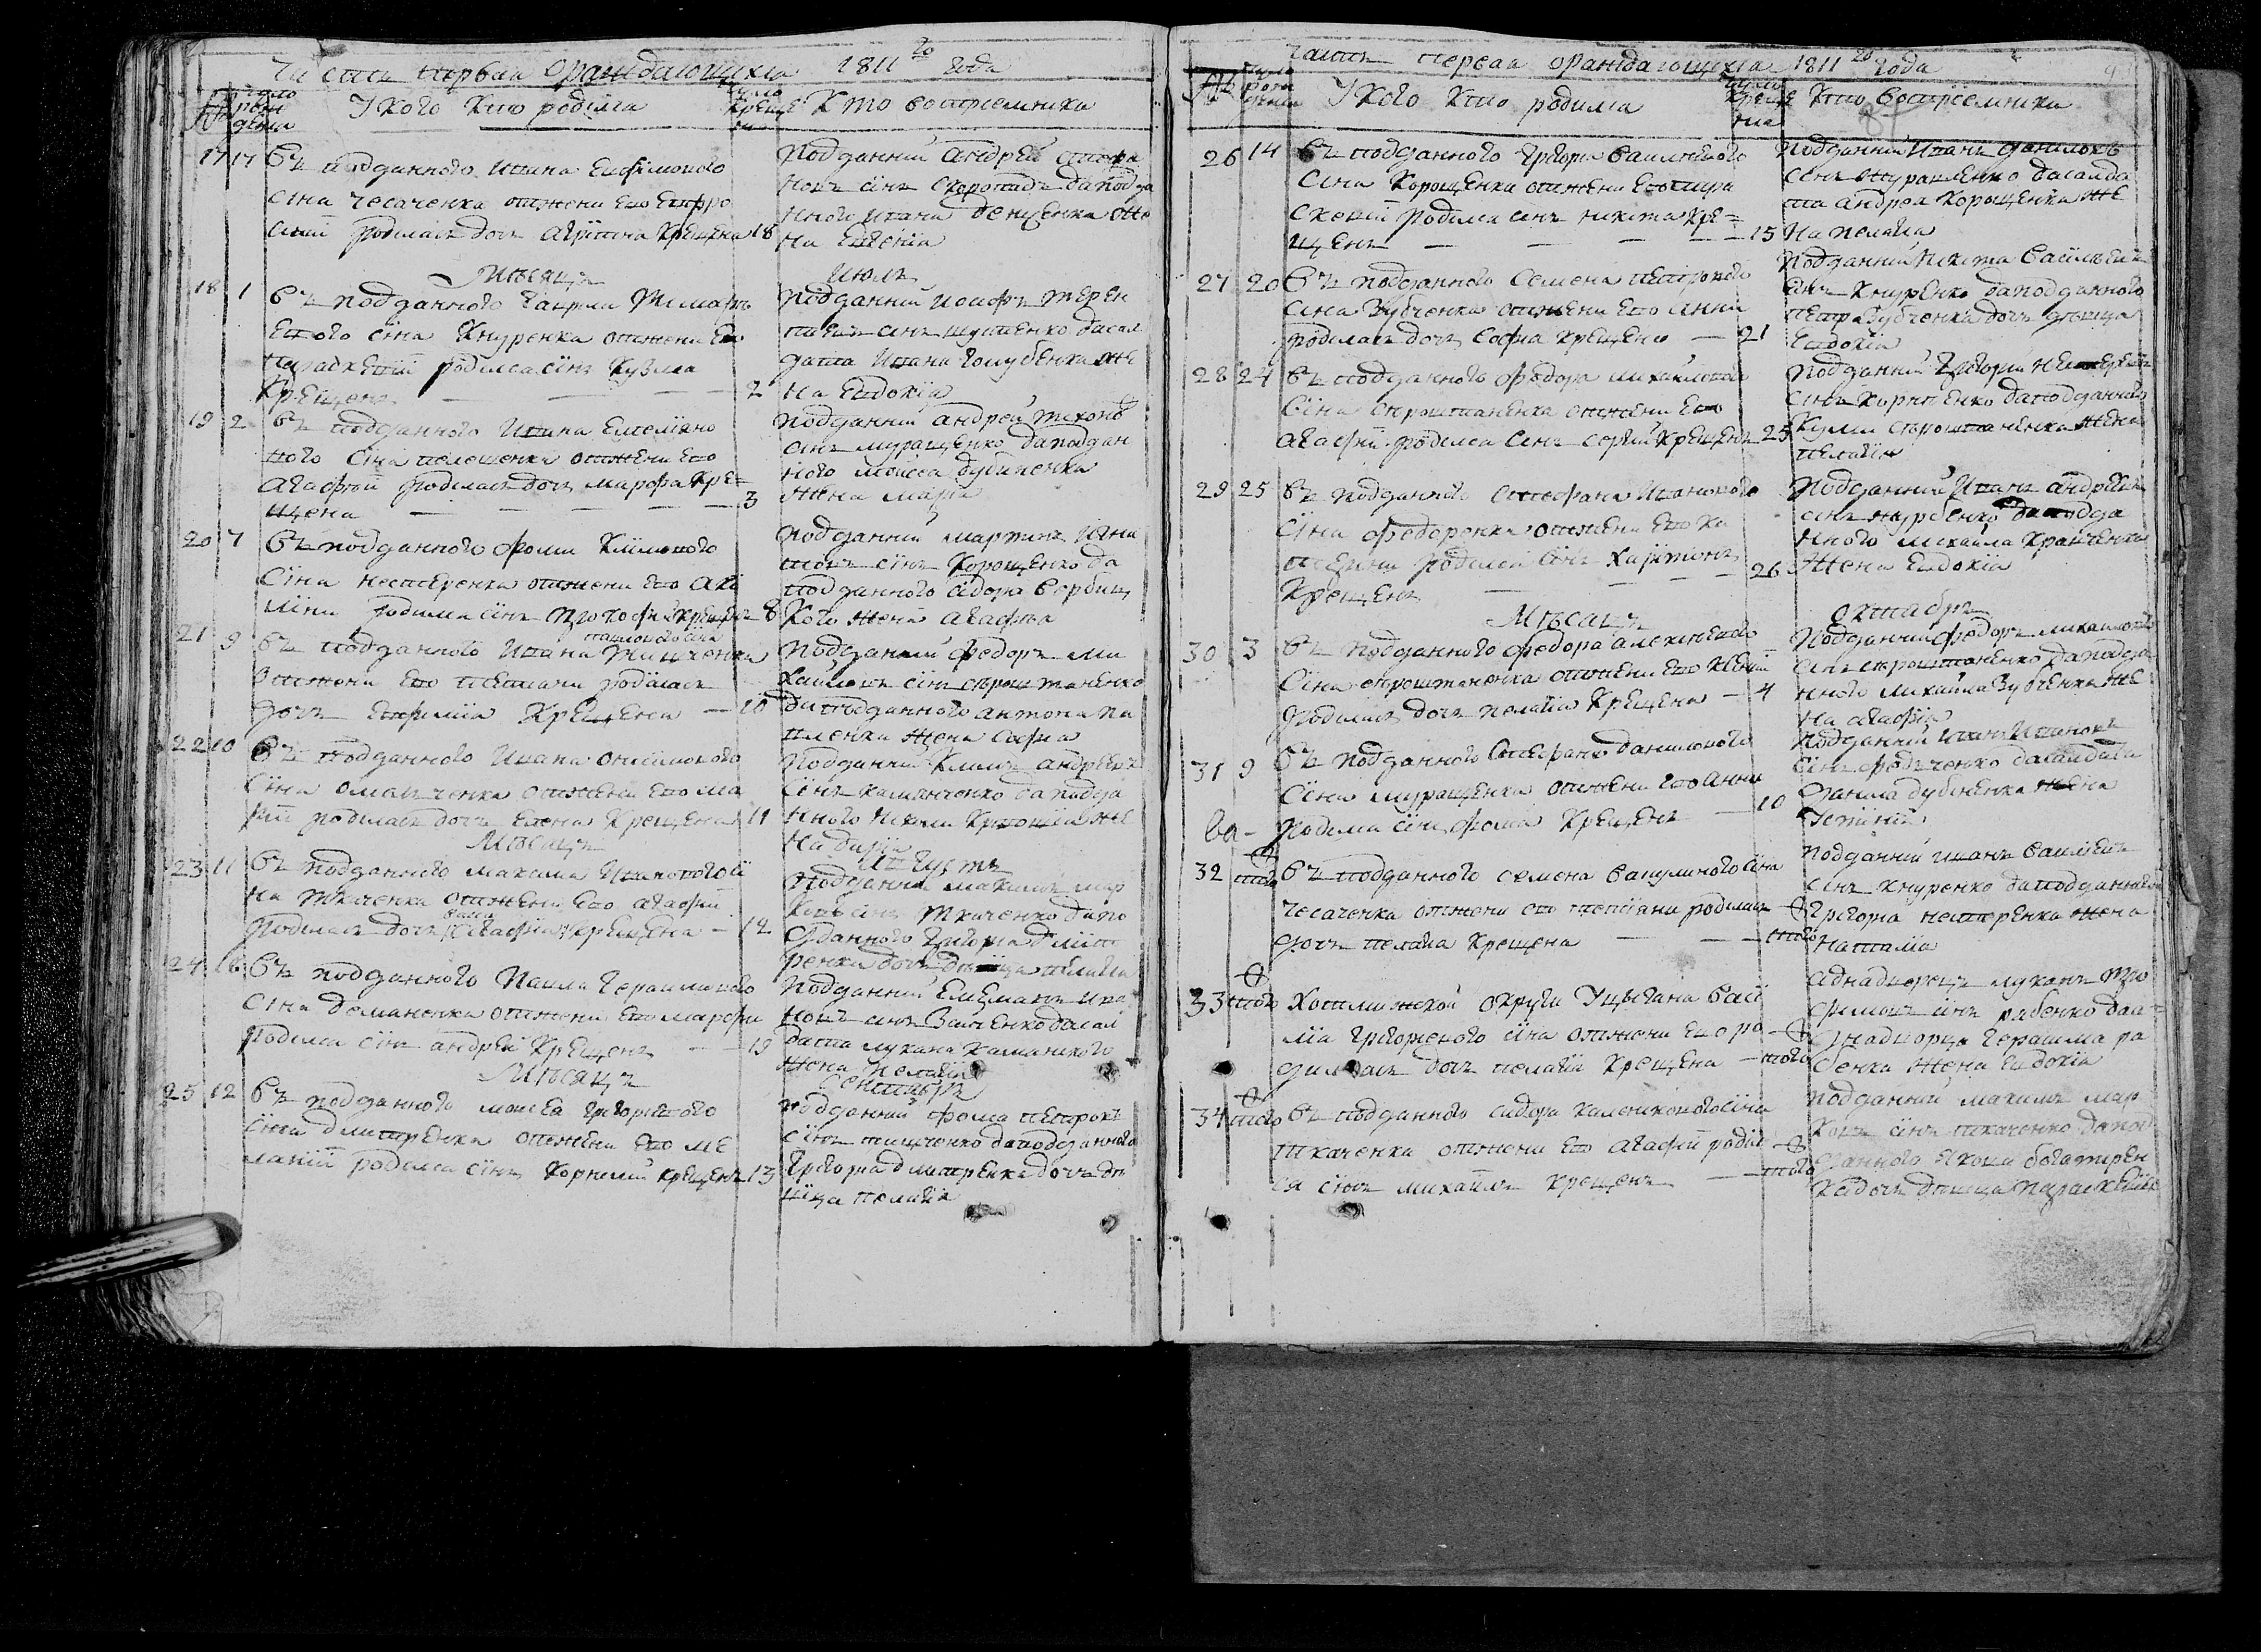 Часть первая ораждающихся 1811го года
№ число рождения У кого кто родился число крещения Кто восприемники
17 17 въ подданного Ивана Евфимового
сина Чесаченка отжени его Евфро
синїи родилась дочь Агрипина крещена 18
Подданнїй Андрей
синъ Скоропадъ даподда
нного Ивана Денщенка же
на Евгенїя
Мѣсяцъ Июль
18 1 въ подданного Гаврила Тимофѣ
евого сїна Кнуренка отжени его
Параскевїи родился сїнъ Кузма
крещенъ 2
Подданнїй Иосифъ Терен
тїевъ синъ Шутенко дасал
дата Ивана Голубенка же
на Евдокїя
19 2 въ подданного Ивана Емелїяно
вого сїна Пелешенка отжени его
Агафїи родилась дочь Марфа кре=
щена 3
Подданнїй Андрей Тихоновъ
синъ Муращенко даподдан
ного Моисея Дубиненка
жена Марїя
20 7 въ подданного Фоми Климового
Сїна Нестеренка отжени его Аки
лини родился сїнъ Прокофїй крещенъ 8
Подданнїй Мартинъ Игна
товъ сїнъ Корощенко да
подданного Сидора Вербиц
кого жена Агафїя
21 9 въ подданного Ивана Павлового сїна Тимченка
отжени его Татїани родилась
дочь Евфимїя крещена 10
Подданнїй Федоръ Ми
хайловъ синъ Сыроштаненко
даподданного Антона Па
вленка жена Софїя
22 10 въ подданного Ивана Онисимового
Сїна Омелъченка отжени его Ма
рїи родилась дочь Елена крещена 11
Подданнїй Климъ Андреевъ
сїнъ Калниченко даподда
нного же
на Дарїя
Мѣсяцъ Августъ
23 11 въ подданного Максима Ивановогосї
на Ткаченка отжени его Агафїи
родилась дочь крещена 12
Подданнїй Максимъ Мар
ковъ синъ Ткаченко дапо
дданного Григорїя Дмит
ренка дочь девица Пелагїя
24 18 въ подданного Павла Герасимового
Сїна Деманенка отжени его Марфи
родился сїнъ Андрей крещенъ 19
Подданнїй Ива
новъ синъ дасал
дата Лукяна
жена Пелагїя
Мѣсяцъ Сентябръ
25 12 въ подданного Моисея Григоревого
Сїна Дмитренка отжени его Ме
ланїи родился сїнъ Корнилїй крещенъ 13
Подданнїй Фома Петровъ
сїнъ Тищченко даподданного
Григорїя Дмитренка дочь дѣ
вица Пелагїя
Часть первая ораждающихся 1811го года 9
№ число рождения У кого кто родился число крещения Кто воспрїемники
26 14 въ подданного Григорїя Василїевого
Сина Корощенка отжени его
родился синъ Никита кре=
щенъ 15
Подданнїй Иванъ Даниловъ
синъ Журавленко дасалда
та Андрея Корощенка же
на Пелагїя
27 20 въ подданного Семена Петрового
сина Зубченка отжени его Анни
родилась дочь Софїя крещена 21
Подданнїй Никита Василїевъ
синъ Кнуренко даподданного
Петра Зубченка дочь дѣвица
Евдокїя
28 24 въ подданного Федора Михайлового
Сїна Сыроштаненка отжени его
Агафїи родился синъ Сергїй крещенъ 25
Подданнїй Григорїй
синъ даподданного
Кузми Сыроштаненка жена
Пелагїя
29 25 въ подданного Стефана Иванового
Сїна Федоренка отжени его Ка
терини родился сїнъ Харїтонъ
крещенъ 26
Подданнїй Иванъ Андреевъ
синъ даподда
нного Михайла
жена Евдокїя
Мѣсяцъ Октябръ
30 3 въ подданного Федора Алексѣевого
Сїна Сыроштаненка отжени его Ксенїи
родилась дочь Пелагїя крещена 4
Подданнїй Федоръ Михайловъ
синъ Сыроштаненко даподда
нного Михайла Зубченка же
на Агафїя
31 9 въ подданного Стефана Данилового
Сїна Муращенка отжени его Анни
родился сїнъ Фома крещенъ 10
Подданнїй Иванъ Ивановъ
синъ Федченко дасалдата
Данила Дубиненка жена
Устинїя
32 того въ подданного Семена Вакулиногосїна
Чесаченка отжени его родилась
дочь Пелагїя крещена того
Подданнїй Иванъ Василїевъ
синъ Кнуренко даподданного
Григорїя Нестеренка жена
Наталїя
33 того Хотмижской округи Уцыгана Васи
лїя Григоревого сїна отжени его ро
дилась дочь Пелагїя крещена того
аднадворецъ Лукянъ Тро
фимовъ синъ Рябенко даа=
днадворца Герасима Ря
бенка жена Евдокїя
34 того въ подданного Сидора Калениковогосїна
Ткаченка отжени его Агафїи родил
ся сїнъ Михайлъ крещенъ того
Подданнїй Максимъ Мар
ковъ сїнъ Ткаченко дапод
данного Якова Богатирен
ка дочь дѣвица Параскевїя